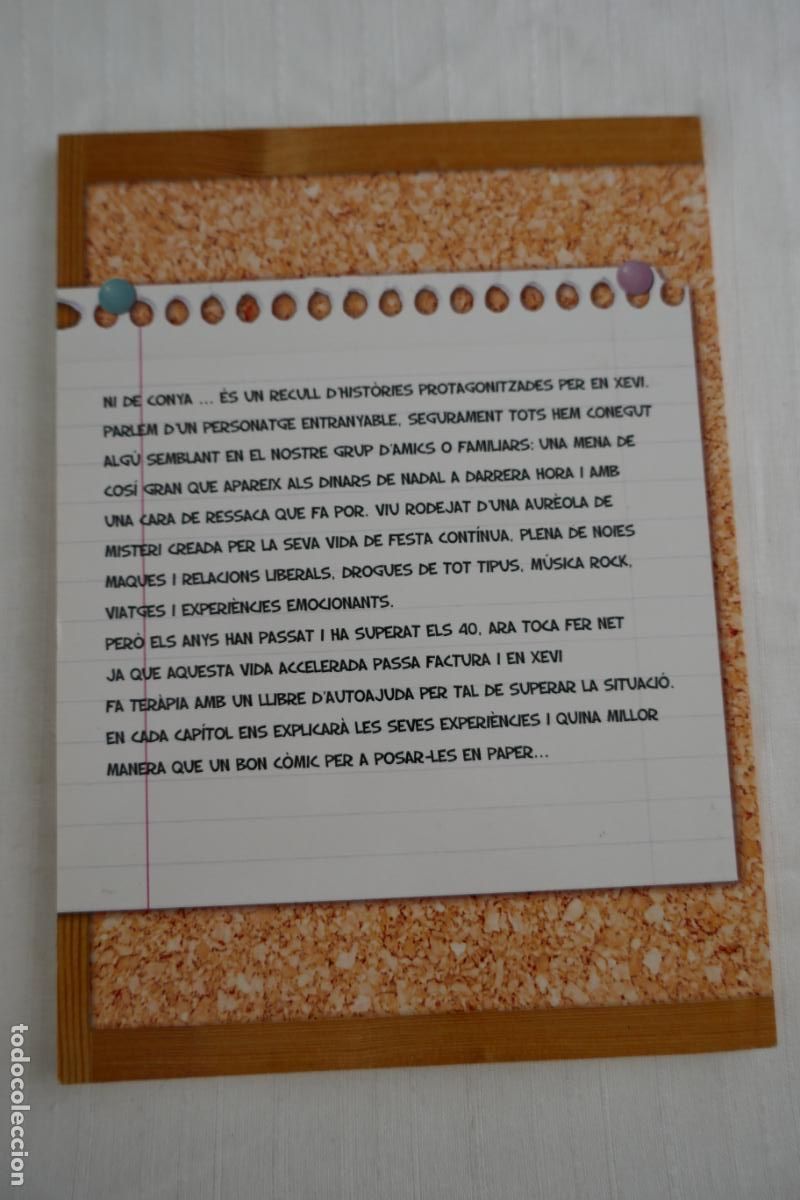 NI DE CONYA ... ÉS UN RECULL D'HISTÒRIES PROTAGONITZADES PER EN XEVI.
PARLEM D'UN PERSONATGE ENTRANYABLE, SEGURAMENT TOTS HEM CONEGUT
ALGÚ SEMBLANT EN EL NOSTRE GRUP D'AMICS O FAMILIARS: UNA MENA DE
COSÍ GRAN QUE APAREIX ALS DINARS DE NADAL A DARRERA HORA I AMB
UNA CARA DE RESSACA QUE FA POR. VIU RODEJAT D'UNA AURÈOLA DE
MISTERI CREADA PER LA SEVA VIDA DE FESTA CONTÍNUA, PLENA DE NOIES
MAQUES I RELACIONS LIBERALS, DROGUES DE TOT TIPUS, MÚSICA ROCK,
VIATGES I EXPERIÈNCIES EMOCIONANTS.
PERÒ ELS ANYS HAN PASSAT I HA SUPERAT ELS 40, ARA TOCA FER NET
JA QUE AQUESTA VIDA ACCELERADA PASSA FACTURA I EN XEVI
FA TERÀPIA AMB UN LLIBRE D'AUTOAJUDA PER TAL DE SUPERAR LA SITUACIÓ.
EN CADA CAPÍTOL ENS EXPLICARÀ LES SEVES EXPERIÈNCIES I QUINA MILLOR
MANERA QUE UN BON CÒMIC PER A POSAR-LES EN PAPER...
todocoleccion